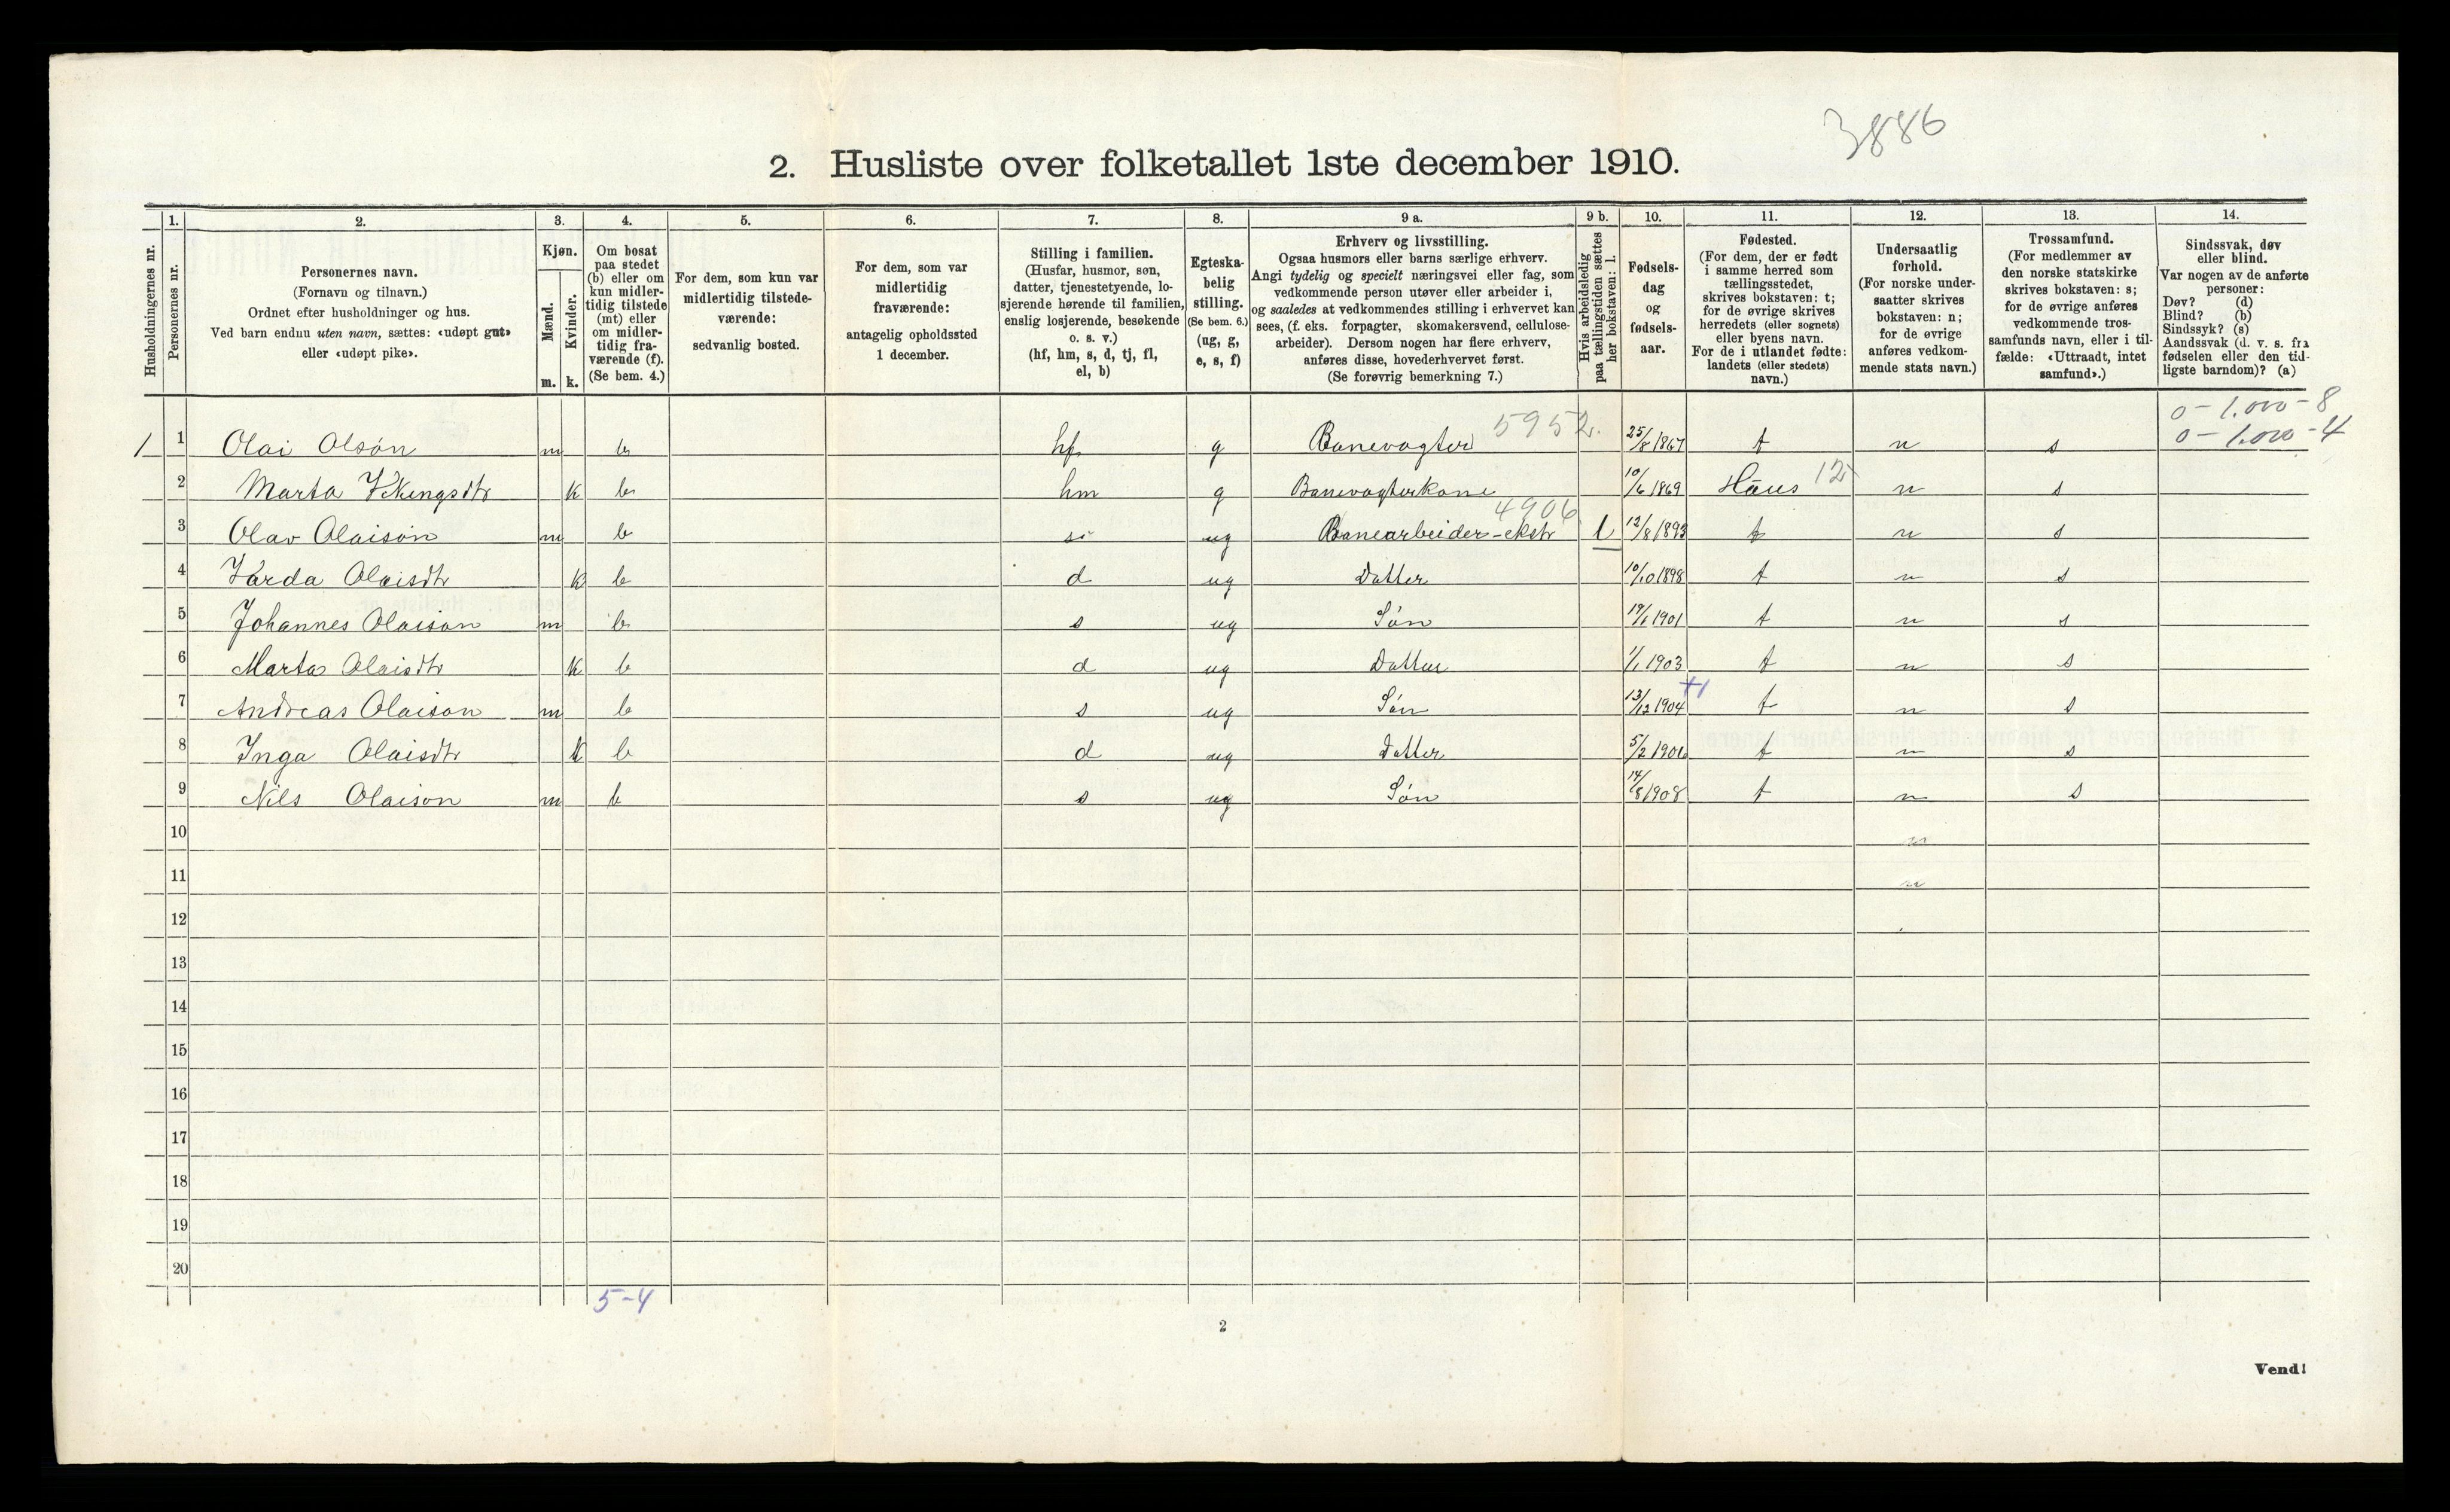 3886
2. Husliste over folketallet 1ste december 1910.
Husholdningernes nr.
1. 2. 3. 4. 5. 6. 7. 8. 9 a. 9 b. 10. 11. 12. 13. 14.
Personernes nr.
Personernes navn.
(Fornavn og tilnavn.)
Ordnet efter husholdninger og hus.
Ved barn endnu uten navn, sættes: «udøpt gut»
eller «udøpt pike».
Kjøn.
Mænd.
Kvinder.
m. k.
Om bosat
paa stedet
(b) eller om
kun midler-
tidig tilstede
(mt) eller
om midler-
tidig fra-
værende (f).
(Se bem. 4.)
For dem, som kun var
midlertidig tilstede-
værende:
sedvanlig bosted.
For dem, som var
midlertidig
fraværende:
antagelig opholdssted
1 december.
Stilling i familien.
(Husfar, husmor, søn,
datter, tjenestetyende, lo-
sjerende hørende til familien,
enslig losjerende, besøkende
o. s. v.)
(hf, hm, s, d, tj, fl,
el, b)
Egteska-
belig
stilling.
(Se bem. 6.)
(ug, g,
e, s, f)
Erhverv og livsstilling.
Ogsaa husmors eller barns særlige erhverv.
Angi tydelig og specielt næringsvei eller fag, som
vedkommende person utøver eller arbeider i,
og saaledes at vedkommendes stilling i erhvervet kan
sees, (f. eks. forpagter, skomakersvend, cellulose-
arbeider). Dersom nogen har flere erhverv,
anføres disse, hovederhvervet først.
(Se forøvrig bemerkning 7.)
Hvis arbeidsledig
paa tællingstiden sættes
her bokstaven: l.
Fødsels-
dag
og
fødsels-
aar.
Fødested.
(For dem, der er født
i samme herred som
tællingsstedet,
skrives bokstaven: t;
for de øvrige skrives
herredets (eller sognets)
eller byens navn.
For de i utlandet fødte:
landets (eller stedets)
navn.)
Undersaatlig
forhold.
(For norske under-
saatter skrives
bokstaven: n;
for de øvrige
anføres vedkom-
mende stats navn.)
Trossamfund.
(For medlemmer av
den norske statskirke
skrives bokstaven: s;
for de øvrige anføres
vedkommende tros-
samfunds navn, eller i til-
fælde: «Uttraadt, intet
samfund».)
Sindssvak, døv
eller blind.
Var nogen av de anførte
personer:
Døv? (d)
Blind? (b)
Sindssyk? (s)
Aandssvak (d. v. s. fra
fødselen eller den tid-
ligste barndom)? (a)
0-1.000-8
1 1 Olai Olsøn m b hf g Banevogter 5952. 25/8 1867 t n s 0-1.000-4
2 Marta k b hm g Banevogterkone 10/6 1869 Haus 12 n s
3 Olav Olaisøn m b s ug Banearbeider-ekstr 4906 l 12/8 1893 t n s
4 Olaisdtr k b d ug Datter 10/10 1898 t n s
5 Johannes Olaison m b s ug Søn 1901 t n s
6 Marta Olaisdtr k b d ug Datter 1/1 1903 t n s
7 Andreas Olaison m b s ug Søn 13/12 1904 t n s
8 Inga Olaisdtr k b d ug Datter 5/2 1906 t n s
9 Nils Olaison m b s ug Søn 14/8 1908 t n s
10 n
11 n
12
13
14
15
16
17
18
19
20
5-4
2
Vend!